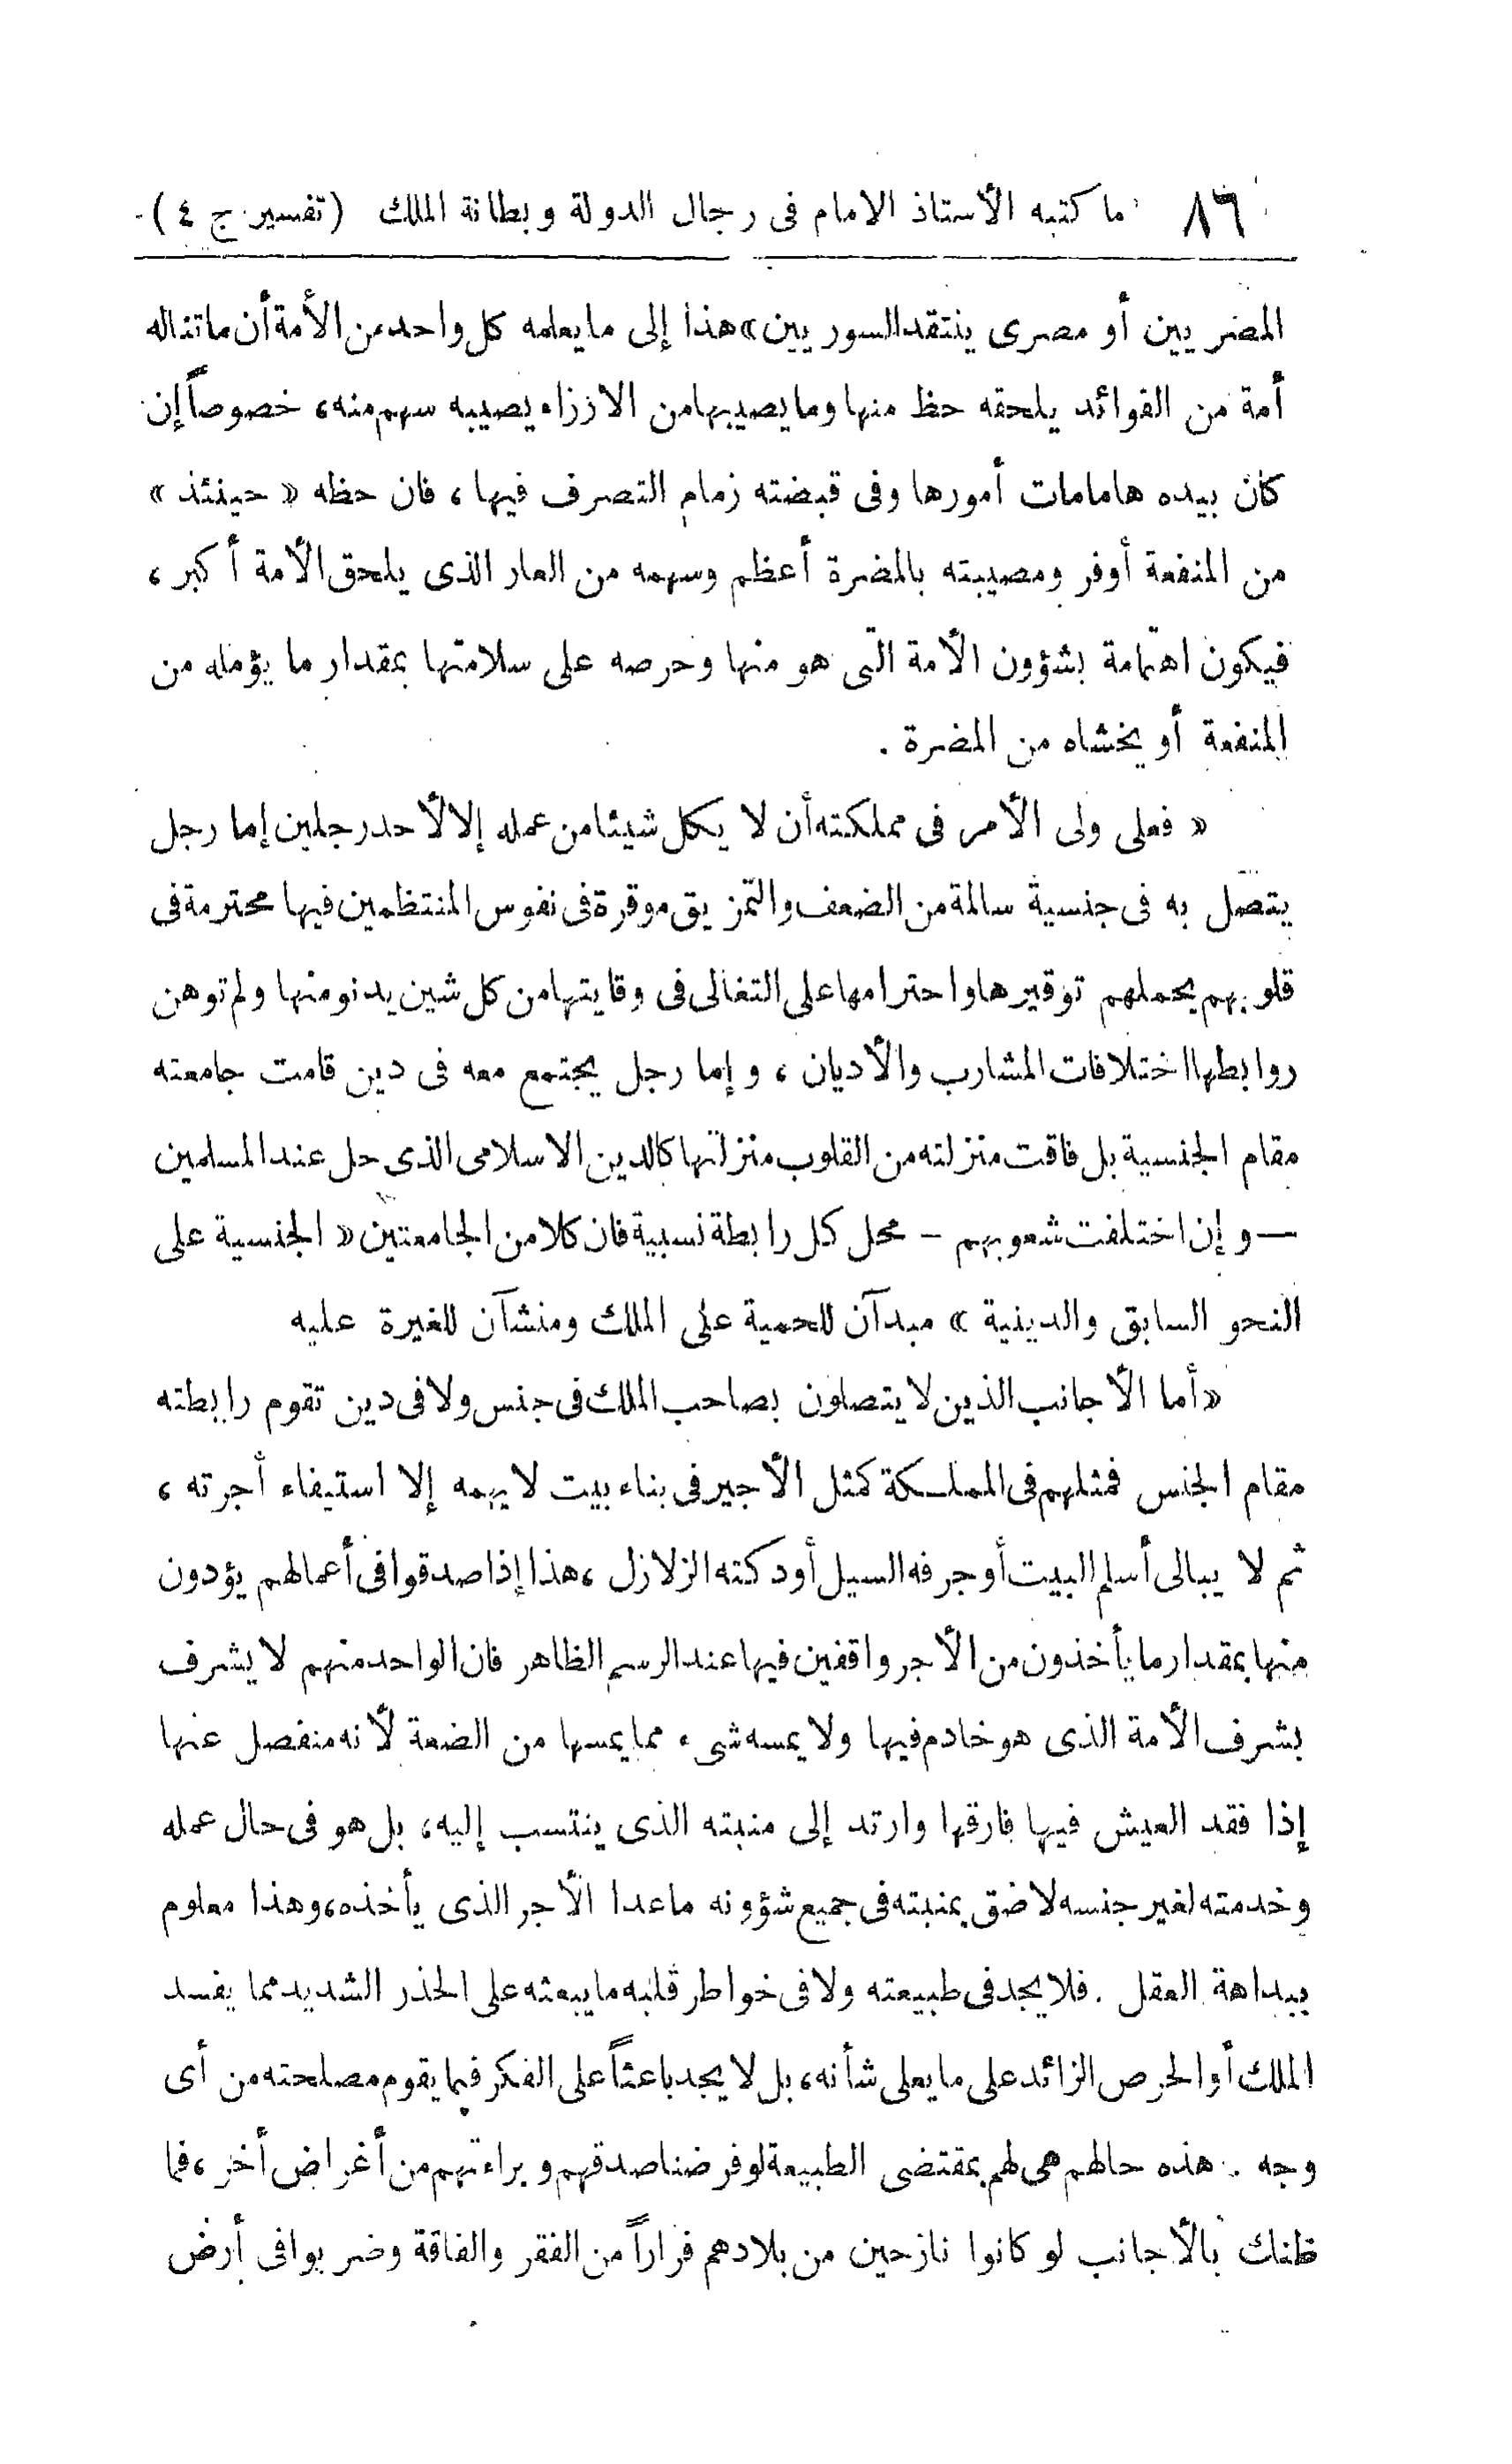 ٨٦ ما كتبه الأستاذ الامام فى رجال الدولة وبطانة الملك (تفسير ج ٤)
المضريين أو مصرى ينتقد السوريين» هذا إلى ما يعلمه كل واحد من الأمة أن ما تناله
أمة من الفوائد يلحقه حظ منها وما يصيبها من الارزاء يصيبه سهم منه، خصوصاً إن
كان بيده هامامات أمورها وفى قبضته زمام التصرف فيها، فان حظه «حينئذ»
من المنفعة أوفر ومصيبته بالمضرة أعظم وسهمه من العار الذى يلحق الأمة أكبر،
فيكون اهتمامة بشؤون الأمة التى هو منها وحرصه على سلامتها بمقدار ما يؤمله من
المنفعة أو يخشاه من المضرة.
«فعلى ولى الأمر فى مملكته أن لا يكل شيئا من عمله إلا لأحد رجلين إما رجل
يتصل به فى جنسية سالمة من الضعف والتمزيق موقرة فى نفوس المنتظمين فيها محترمة فى
قلوبهم يحملهم توقيرها واحترامها على التغالى فى وقايتها من كل شين يدنو منها ولم توهن
روابطها اختلافات المشارب والأديان، وإما رجل يجتمع معه فى دين قامت جامعته
مقام الجنسية بل فاقت منزلته من القلوب منزلتها كالدين الاسلامى الذى حل عند المسلمين
— وإن اختلفت شعوبهم - محل كل رابطة نسبية فان كلا من الجامعتين «الجنسية على
النحو السابق والدينية» مبدآن للحمية على الملك ومنشآن للغيرة عليه
«أما الأجانب الذين لا يتصلون بصاحب الملك فى جنس ولا فى دين تقوم رابطته
مقام الجنس فمثلهم فى المملكة كمثل الأجير فى بناء بيت لا يهمه إلا استيفاء أجرته،
ثم لا يبالى أسلم البيت أو جرفه السيل أو دكته الزلازل، هذا إذا صدقوا فى أعمالهم يؤدون
منها بمقدار ما يأخذون من الأجر واقفين فيها عند الرسم الظاهر فان الواحد منهم لا يشرف
بشرف الأمة الذى هو خادم فيها ولا يمسه شىء مما يمسها من الضعة لأنه منفصل عنها
إذا فقد العيش فيها فارقها وارتد إلى منبته الذى ينتسب إليه، بل هو فى حال عمله
وخدمته لغير جنسه لاضق بمنبته فى جميع شؤونه ماعدا الأجر الذى يأخذه، وهذا معلوم
ببداهة العقل. فلا يجد فى طبيعته ولا فى خواطر قلبه ما يبعثه على الحذر الشديد مما يفسد
الملك أو الحرص الزائد على ما يعلى شأنه، بل لا يجد باعثاً على الفكر فيما يقوم مصلحته من أى
وجه. هذه حالهم هى لهم بمقتضى الطبيعة لو فرضنا صدقهم وبراءتهم من أغراض أخر، فما
ظنك بالأجانب لو كانوا نازحين من بلادهم فراراً من الفقر والفاقة وضربوا فى أرض